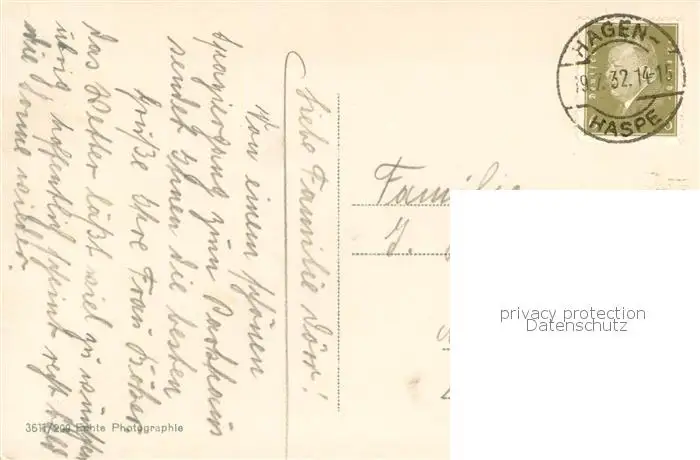 Liebe Familie Dörr!
Von einem schönen
Spaziergang zum Parkhaus
sendet Ihnen die besten
Grüße Ihre Frau
Das Wetter läßt viel zu wünschen
übrig hoffentlich scheint recht bald
die Sonne wieder.
3611/299 Echte Photographie
Familie
J.
HAGEN-
19.7.32.14-15
HASPE
privacy protection
Datenschutz